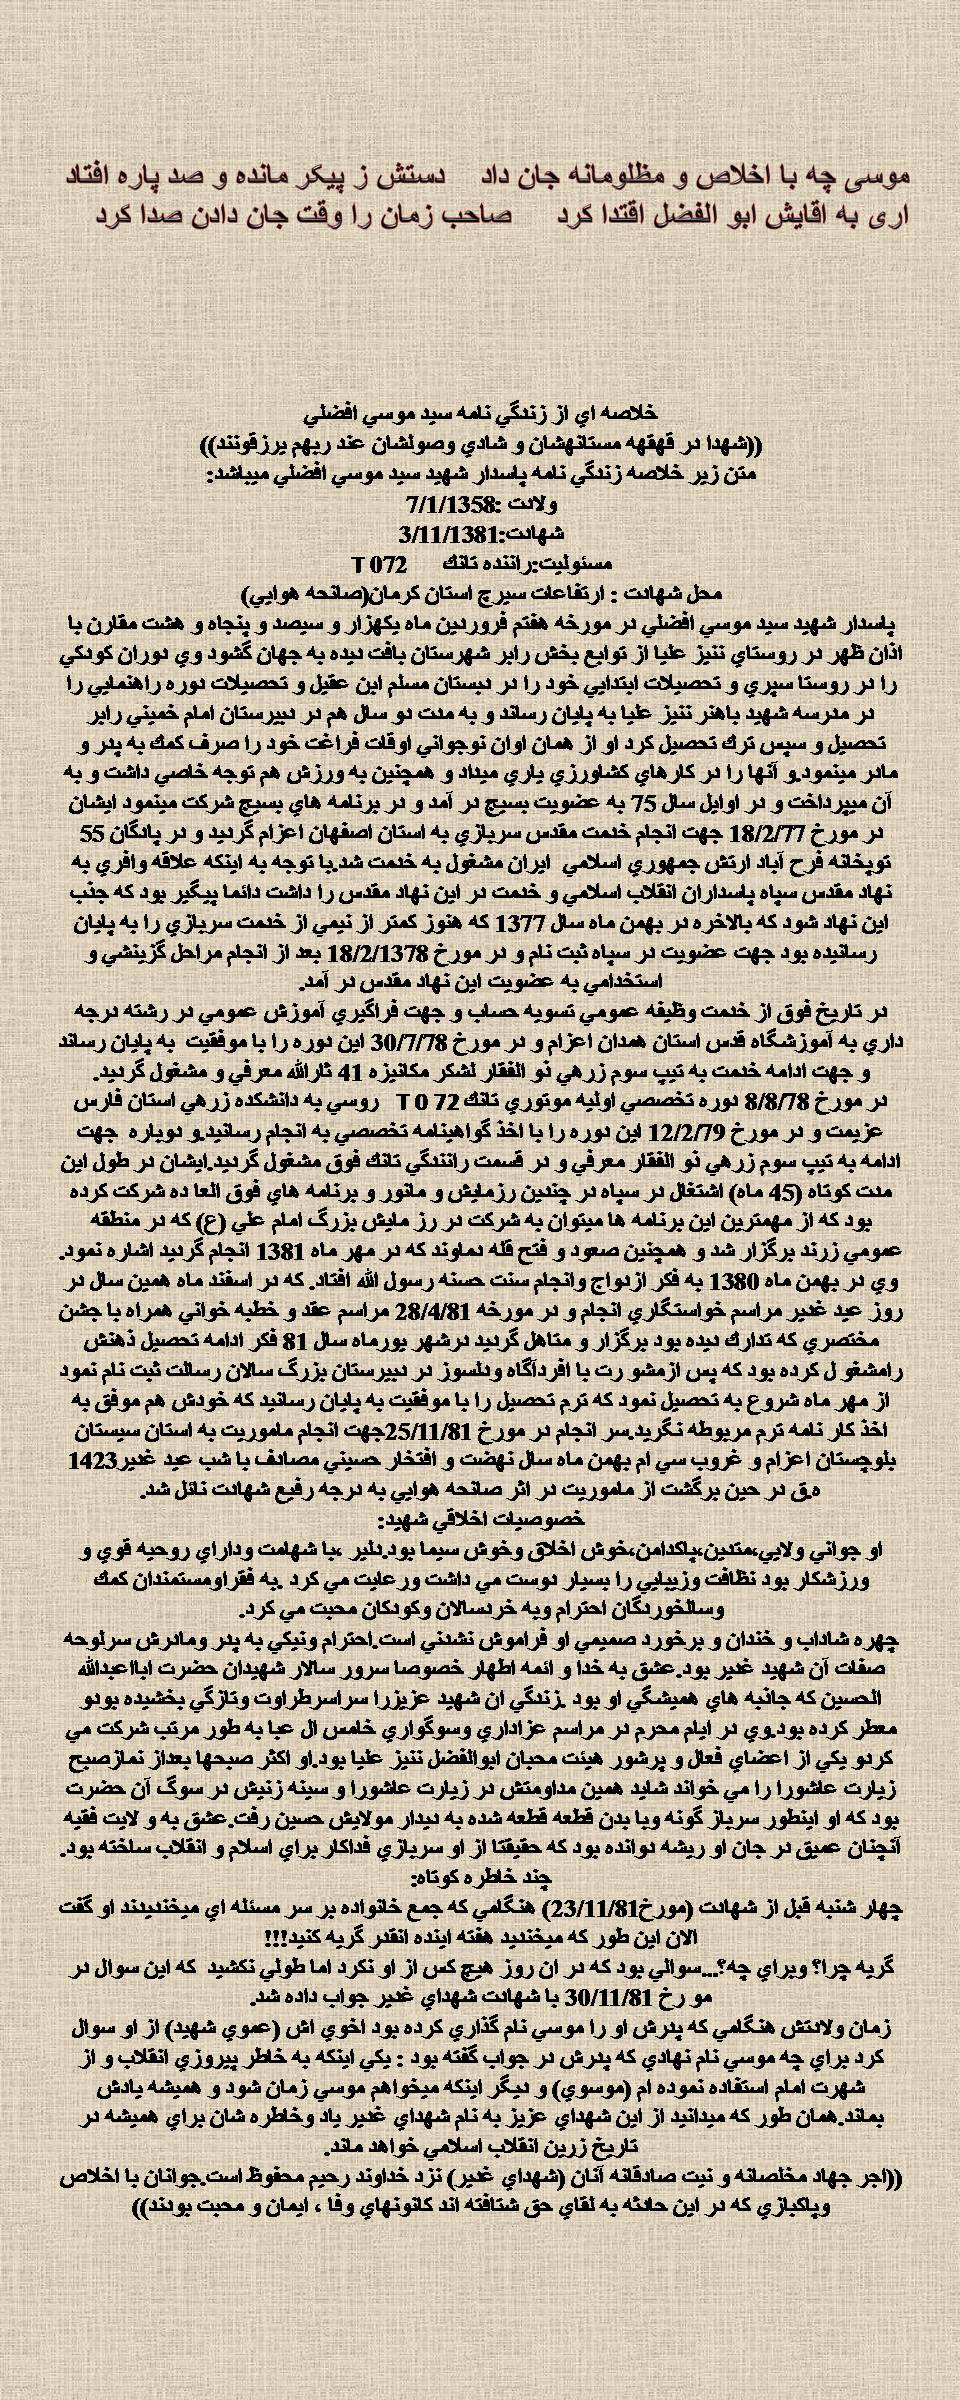 موسی چه با اخلاص و مظلومانه جان داد    دستش ز پیکر مانده و صد پاره افتاد
اری به اقایش ابو الفضل اقتدا کرد    صاحب زمان را وقت جان دادن صدا کرد
خلاصه اي از زندگي نامه سيد موسي افضلي
((شهدا در قهقهه مستانهشان و شادي وصولشان عند ربهم يرزقونند))
متن زير خلاصه زندگي نامه پاسدار شهيد سيد موسي افضلي ميباشد:
ولادت :7/1/1358
شهادت:3/11/1381
مسئوليت:راننده تانك    T 072
محل شهادت : ارتفاعات سيرچ استان كرمان(صانحه هوايي)
پاسدار شهيد سيد موسي افضلي در مورخه هفتم فروردين ماه يكهزار و سيصد و پنجاه و هشت مقارن با
اذان ظهر در روستاي ننيز عليا از توابع بخش رابر شهرستان بافت ديده به جهان گشود وي دوران كودكي
را در روستا سپري و تحصيلات ابتدايي خود را در دبستان مسلم ابن عقيل و تحصيلات دوره راهنمايي را
در مدرسه شهيد باهنر ننيز عليا به پايان رساند و به مدت دو سال هم در دبيرستان امام خميني رابر
تحصيل و سپس ترك تحصيل كرد او از همان اوان نوجواني اوقات فراغت خود را صرف كمك به پدر و
مادر مينمود.و آنها را در كارهاي كشاورزي ياري ميداد و همچنين به ورزش هم توجه خاصي داشت و به
آن ميپرداخت و در اوايل سال 75 به عضويت بسيج در آمد و در برنامه هاي بسيج شركت مينمود ايشان
در مورخ 18/2/77 جهت انجام خدمت مقدس سربازي به استان اصفهان اعزام گرديد و در پادگان 55
توپخانه فرح آباد ارتش جمهوري اسلامي  ايران مشغول به خدمت شد.با توجه به اينكه علاقه وافري به
نهاد مقدس سپاه پاسداران انقلاب اسلامي و خدمت در اين نهاد مقدس را داشت دائما پيگير بود كه جذب
اين نهاد شود كه بالاخره در بهمن ماه سال 1377 كه هنوز كمتر از نيمي از خدمت سربازي را به پايان
رسانيده بود جهت عضويت در سپاه ثبت نام و در مورخ 18/2/1378 بعد از انجام مراحل گزينشي و
استخدامي به عضويت اين نهاد مقدس در آمد.
در تاريخ فوق از خدمت وظيفه عمومي تسويه حساب و جهت فراگيري آموزش عمومي در رشته درجه
داري به آموزشگاه قدس استان همدان اعزام و در مورخ 30/7/78 اين دوره را با موفقيت  به پايان رساند
و جهت ادامه خدمت به تيپ سوم زرهي ذو الفقار لشكر مكانيزه 41 ثارالله معرفي و مشغول گرديد.
در مورخ 8/8/78 دوره تخصصي اوليه موتوري تانك T 0 72  روسي به دانشكده زرهي استان فارس
عزيمت و در مورخ 12/2/79 اين دوره را با اخذ گواهينامه تخصصي به انجام رسانيد.و دوباره  جهت
ادامه به تيپ سوم زرهي ذو الفقار معرفي و در قسمت رانندگي تانك فوق مشغول گرديد.ايشان در طول اين
مدت كوتاه (45 ماه) اشتغال در سپاه در چندين رزمايش و مانور و برنامه هاي فوق العا ده شركت كرده
بود كه از مهمترين اين برنامه ها ميتوان به شركت در رز مايش بزرگ امام علي (ع) كه در منطقه
عمومي زرند برگزار شد و همچنين صعود و فتح قله دماوند كه در مهر ماه 1381 انجام گرديد اشاره نمود.
وي در بهمن ماه 1380 به فكر ازدواج وانجام سنت حسنه رسول الله افتاد. كه در اسفند ماه همين سال در
روز عيد غدير مراسم خواستگاري انجام و در مورخه 28/4/81 مراسم عقد و خطبه خواني همراه با جشن
مختصري كه تدارك ديده بود برگزار و متاهل گرديد درشهر يورماه سال 81 فكر ادامه تحصيل ذهنش
رامشغو ل كرده بود كه پس ازمشو رت با افردآگاه ودلسوز در دبيرستان بزرگ سالان رسالت ثبت نام نمود
از مهر ماه شروع به تحصيل نمود كه ترم تحصيل را با موفقيت به پايان رسانيد كه خودش هم موفق به
اخذ كار نامه ترم مربوطه نگرديد.سر انجام در مورخ 25/11/81جهت انجام ماموريت به استان سيستان
بلوچستان اعزام و غروب سي ام بهمن ماه سال نهضت و افتخار حسيني مصادف با شب عيد غدير1423
ه.ق در حين برگشت از ماموريت در اثر صانحه هوايي به درجه رفيع شهادت نائل شد.
خصوصيات اخلاقي شهيد:
او جواني ولايي،متدين،پاكدامن،خوش اخلاق وخوش سيما بود.دلير ،با شهامت وداراي روحيه قوي و
ورزشكار بود نظافت وزيبايي را بسيار دوست مي داشت ورعايت مي كرد .به فقراومستمندان كمك
وسالخوردگان احترام وبه خردسالان وكودكان محبت مي كرد.
چهره شاداب و خندان و برخورد صميمي او فراموش نشدني است.احترام ونيكي به پدر ومادرش سرلوحه
صفات آن شهيد غدير بود.عشق به خدا و ائمه اطهار خصوصا سرور سالار شهيدان حضرت ابااعبدالله
الحسين كه جانبه هاي هميشگي او بود .زندگي ان شهيد عزيزرا سراسرطراوت وتازگي بخشيده بودو
معطر كرده بود.وي در ايام محرم در مراسم عزاداري وسوگواري خامس ال عبا به طور مرتب شركت مي
كردو يكي از اعضاي فعال و پرشور هيئت محبان ابوالفضل ننيز عليا بود.او اكثر صبحها بعداز نمازصبح
زيارت عاشورا را مي خواند شايد همين مداومتش در زيارت عاشورا و سينه زنيش در سوگ آن حضرت
بود كه او اينطور سرباز گونه وبا بدن قطعه قطعه شده به ديدار مولايش حسين رفت.عشق به و لايت فقيه
آنچنان عميق در جان او ريشه دوانده بود كه حقيقتا از او سربازي فداكار براي اسلام و انقلاب ساخته بود.
چند خاطره كوتاه:
چهار شنبه قبل از شهادت (مورخ23/11/81) هنگامي كه جمع خانواده بر سر مسئله اي ميخنديدند او گفت
الان اين طور كه ميخنديد هفته اينده انقدر گريه كنيد!!!
گريه چرا؟ وبراي چه؟...سوالي بود كه در ان روز هيچ كس از او نكرد اما طولي نكشيد  كه اين سوال در
مو رخ 30/11/81 با شهادت شهداي غدير جواب داده شد.
زمان ولادتش هنگامي كه پدرش او را موسي نام گذاري كرده بود اخوي اش (عموي شهيد) از او سوال
كرد براي چه موسي نام نهادي كه پدرش در جواب گفته بود : يكي اينكه به خاطر پيروزي انقلاب و از
شهرت امام استفاده نموده ام (موسوي) و ديگر اينكه ميخواهم موسي زمان شود و هميشه يادش
بماند.همان طور كه ميدانيد از اين شهداي عزيز به نام شهداي غدير ياد وخاطره شان براي هميشه در
تاريخ زرين انقلاب اسلامي خواهد ماند.
((اجر جهاد مخلصانه و نيت صادقانه آنان (شهداي غدير) نزد خداوند رحيم محفوظ است.جوانان با اخلاص
وپاكبازي كه در اين حادثه به لقاي حق شتافته اند كانونهاي وفا ، ايمان و محبت بودند))